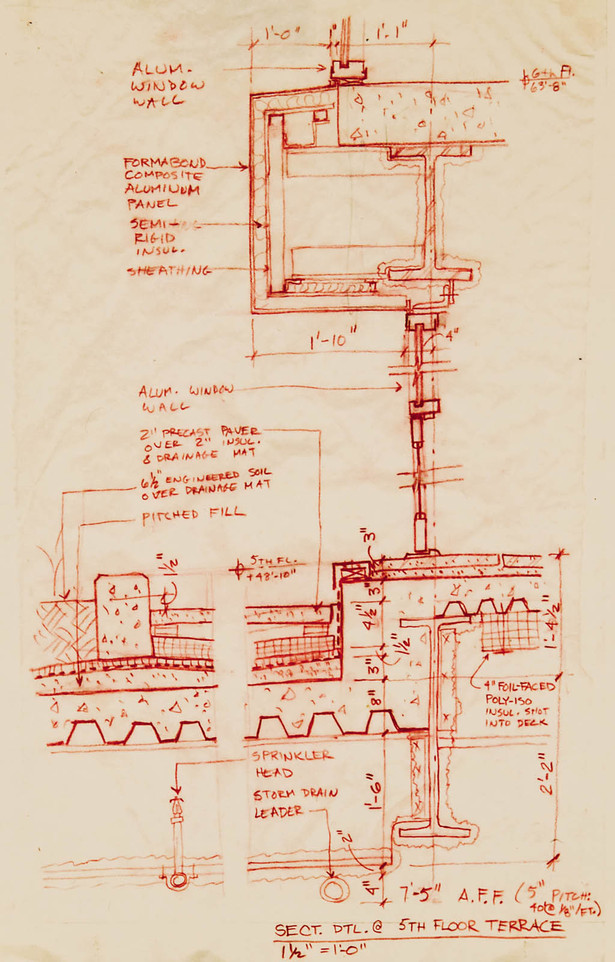 1'-0"
1"
1'-1"
ALUM.
WINDOW
WALL
6th Fl.
63'-8"
FORMABOND
COMPOSITE
ALUMINUM
PANEL
SEMI-
RIGID
INSUL.
SHEATHING
1'-10"
4"
ALUM. WINDOW
WALL
2" PRECAST PAVER
OVER 2" INSUL.
& DRAINAGE MAT
6½" ENGINEERED SOIL
OVER DRAINAGE MAT
PITCHED FILL
1½"
5TH FL.
+48'-10"
3"
3"
4½"
1½"
3"
8"
1'-4½"
4" FOIL-FACED
POLY-ISO
INSUL. SHOT
INTO DECK
SPRINKLER
HEAD
STORM DRAIN
LEADER
1'-6"
2'-2"
2"
4"
7'-5" A.F.F. (5" PITCH:
40@ 1/8"/FT.)
SECT. DTL. @ 5TH FLOOR TERRACE
1½" = 1'-0"